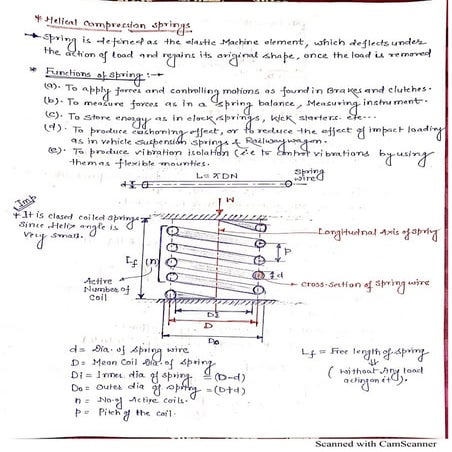 * Helical Compression springs
→ Spring is defined as the elastic Machine element, which deflects under
the action of load and regains its original shape, once the load is removed
* Functions of Spring :→
(a). To apply forces and controlling motions as found in Brakes and clutches.
(b). To measure forces as in a spring balance, Measuring instrument.
(c). To store energy as in clock springs, Kick starters. etc...
(d). To produce cushoning effect, or to reduce the effect of impact loading
as in vehicle suspension springs & Railway wagon.
(e). To produce vibration isolation (i.e to control vibrations by using
them as flexible mounties.
L = πDN
d
Spring
wire
Imp
* It is closed coiled springs
since Helix angle is
very small.
W
Longitudnal Axis of spring
P
Lf
(n)
d
Cross-section of Spring wire
Active
Number of
Coil
Di
D
Do
d = Dia. of spring wire
D = Mean Coil Dia. of Spring
Di = Inner dia of spring = (D-d)
Do = Outer dia of spring = (D+d)
n = No. of Active coils.
P = Pitch of the coil.
Lf = Free length of spring
(without Any load
acting on it).
Scanned with CamScanner